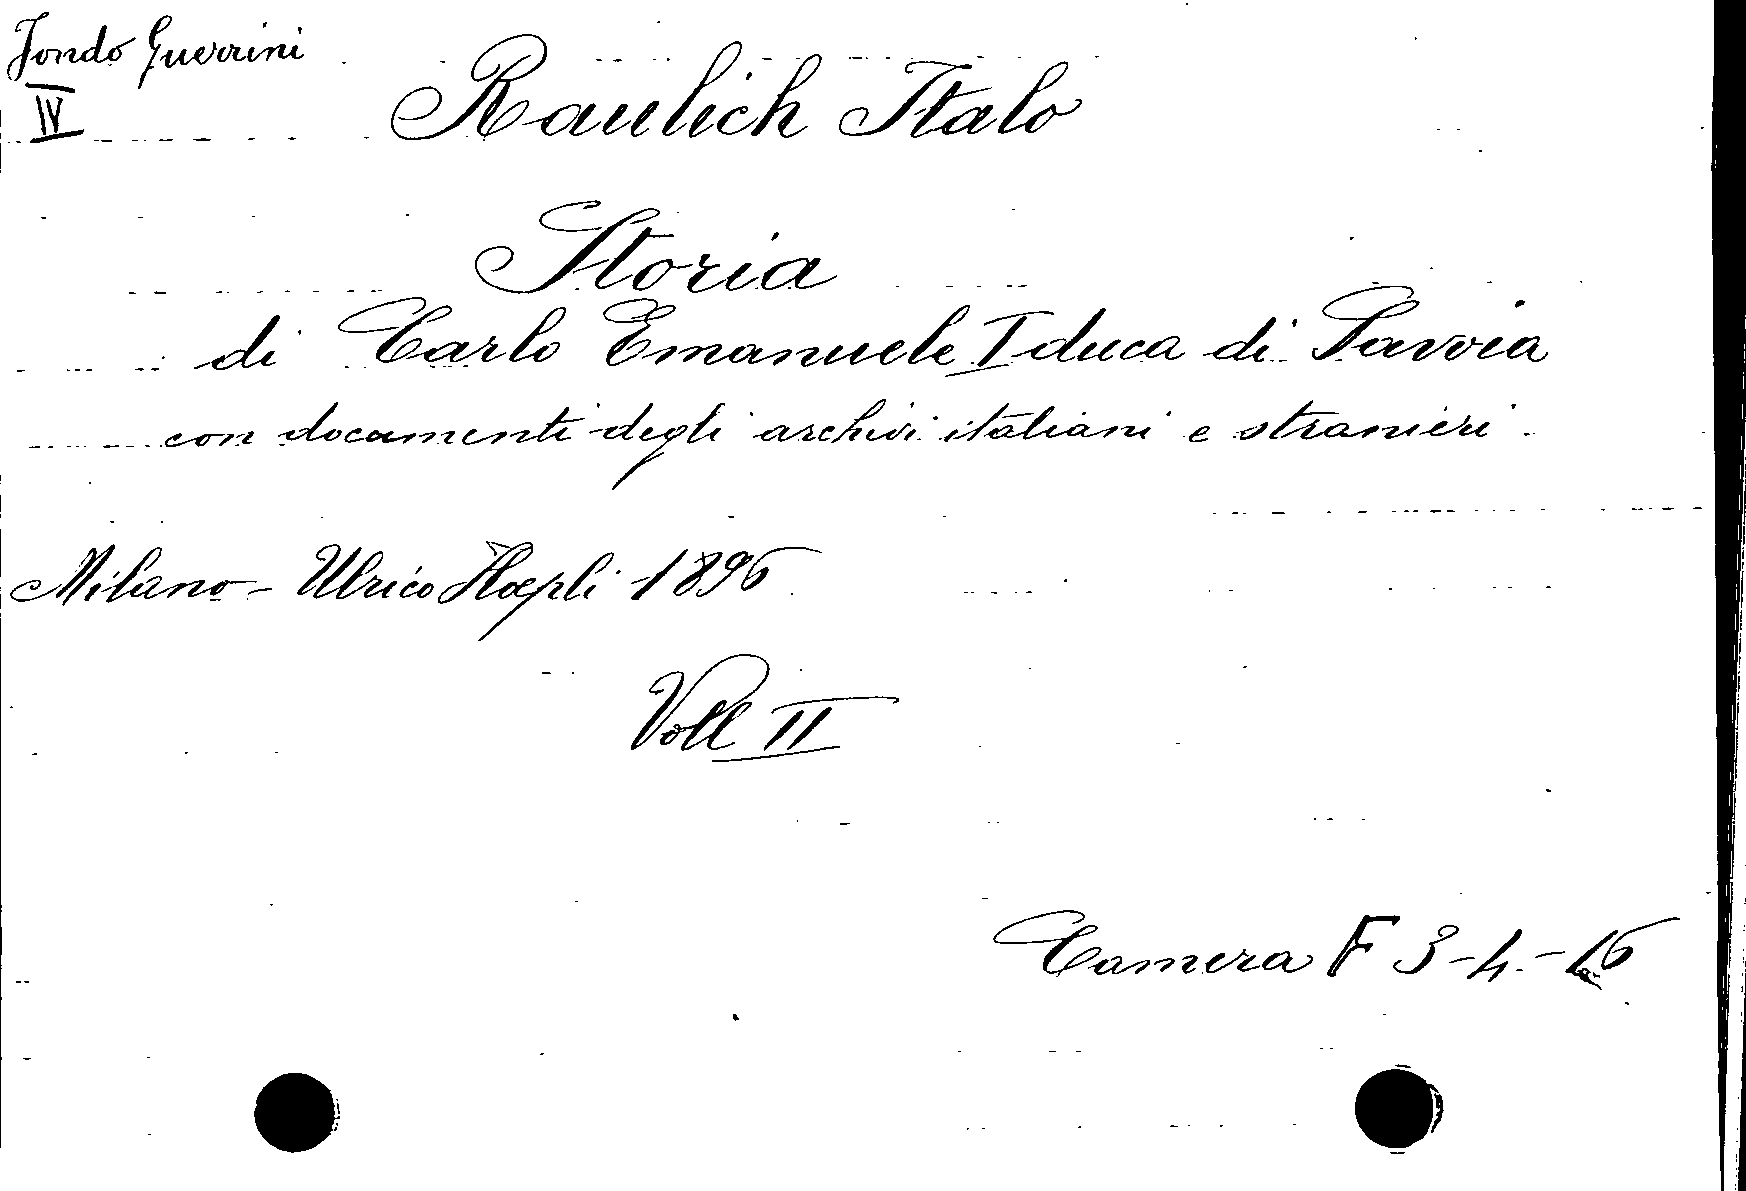 Fondo Guerrini
IV
Raulich Italo
Storia
di Carlo Emanuele I duca di Savoia
con documenti degli archivi italiani e stranieri.
Milano - Ulrico Hoepli - 1896
Voll II
Camera F 3-4.-16